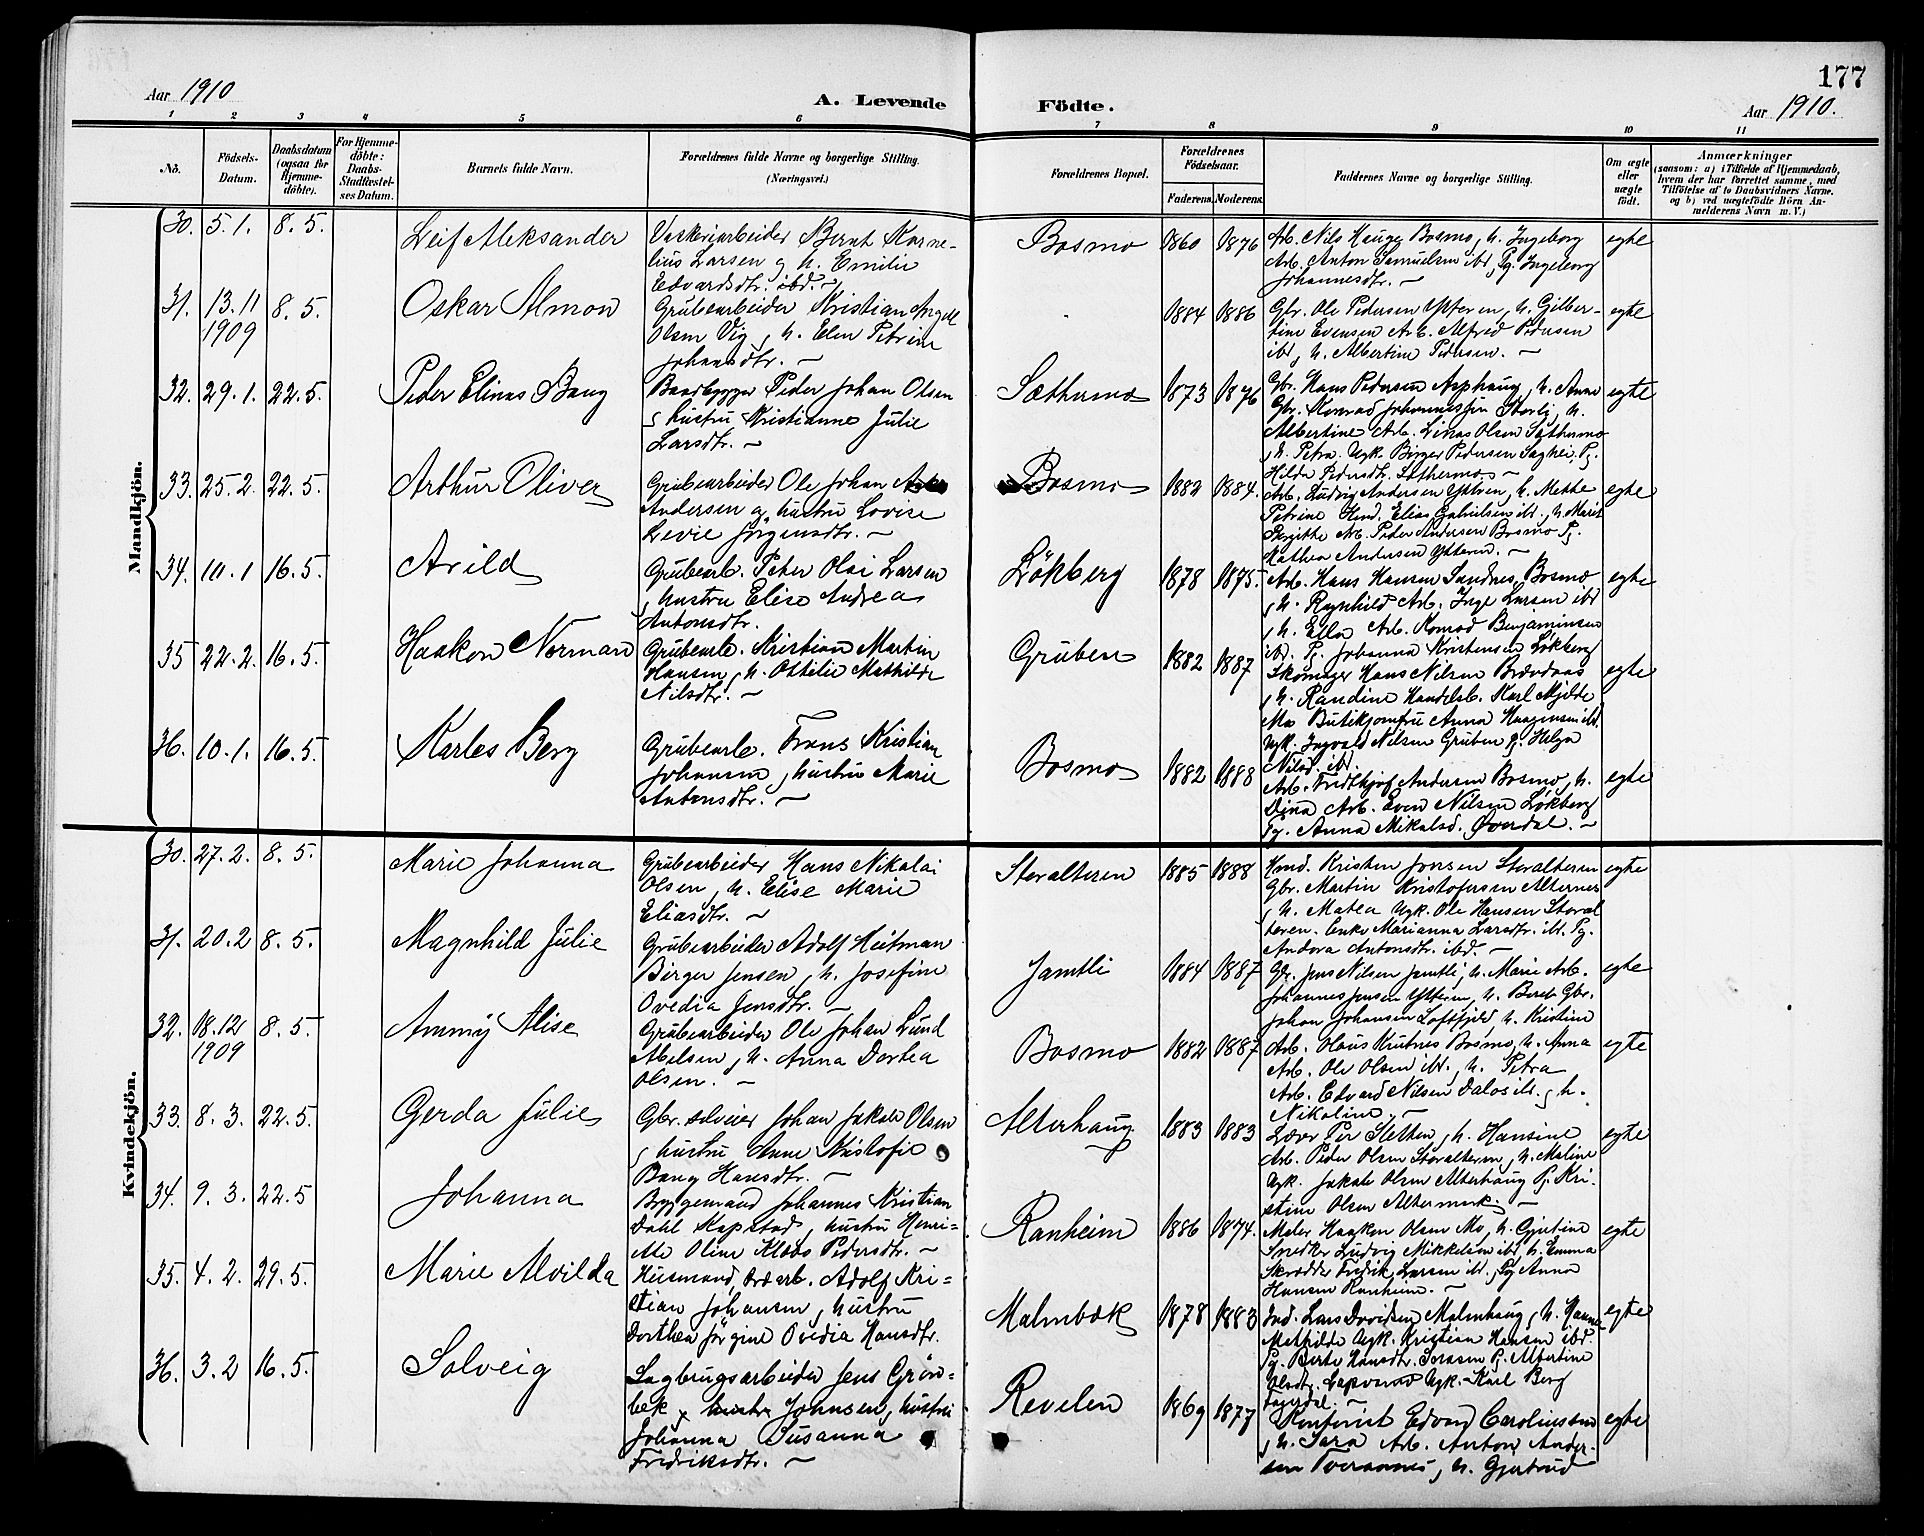 177
Aar 1910
A. Levende
Födte.
Aar 1910.
1 2 3 4 5 6 7 8 9 10 11
No.
Födsels-
Datum.
Daabsdatum
(ogsaa for
Hjemme-
döbte).
For Hjemme-
döbte:
Daabs-
Stadfæstel-
ses Datum.
Barnets fulde Navn.
Forældrenes fulde Navne og borgerlige Stilling.
(Næringsvei.)
Forældrenes Bopæl.
Forældrenes
Födselsaar.
Faderens.
Moderens.
Faddernes Navne og borgerlige Stilling.
Om ægte
eller
uægte
födt.
Anmærkninger
(saasom: a) i Tilfælde af Hjemmedaab,
hvem der har forrettet samme, med
Tilföielse af to Daabsvidners Navne,
og b) ved uægtefödte Börn An-
melderens Navn m. V.)
Mandkjön.
30. 5. 1. 8. 5. Leif Aleksander
Vaskeriarbeider Bernt Korne-
lius Larsen og h. Emilie
Edvardsdtr. ibd.
Bosmo 1860 1876
Arb. Nils Hauge Bosmo, h. Ingeborg
Arb. Anton Samuelsen ibd, Pg. Ingeborg
Johannesdtr. —
egte
31. 13. 11 1909 8. 5. Oskar Almon
Grubearbeider Kristian Angel
Olsen Vig, h. Elen Petrine
Johansdtr. —
1884 1886
Gbr. Ole Pedersen Ytteren, h. Gjilber-
tine Evensen Arb. Alfred Pedersen
ibd, h. Albertine Pedersen. —
egte
32. 29. 1. 22. 5. Peder Elinas Bang
Baadbygger Peder Johan Olsen
, hustru Kristianne Julie
Larsdtr. —
Sæthermo 1873 1876
Gbr. Hans Pedersen Asphaug, h. Anne
Gbr. Konrad Johannessen Storli, h.
Albertine Arb. Linas Olsen Sæthermo
, h. Petra. Ugk. Birger Pedersen Saghei. Pg.
Hilda Pedersdtr. Sæthermo. —
egte
33. 25. 2. 22. 5. Arthur Oliver
Grubearbeider Ole Johan
Andersen og hustru Lovise
Levie Jörgensdtr. —
Bosmo 1882 1884.
Arb. Ludvig Andersen Ytteren, h. Methe
Petrine Hmd. Elias Gabrielsen ibd., h. Marit
Birgitte Arb. Peder Andersen Bosmo Pg.
Mathea Andersen Ytteren. —
egte
34. 10. 1 16. 5. Arild
Grubearb. Peter Olai Larsen
, hustru Elise Andrea
Antonsdtr.
Lökberg 1878 1875.
Arb. Hans Hansen Sandnes, Bosmo
, h. Ragnhild Arb. Inge Larsen ibd
, h. Ella Arb. Konrad Benjaminsen
ibd. Pg. Johanna Kristensen Lökberg
egte
35 22. 2. 16. 5. Haakon Norman
Grubearb. Kristian Martin
Hansen, h. Ottilie Mathilde
Nilsdtr. —
Gruben 1882 1887
Skomager Hans Nilsen
, h. Randine Handelsb. Karl Mjelde
Mo Butikjomfru Anna Haagensen ibd.
Ugk. Ingvald Nilsen Gruben Pg. Helga
Nilsd. ibd.
egte
36. 10. 1. 16. 5. Karles Berg
Grubearb. Frans Kristian
Johansen, hustru Marie
Antonsdtr. —
Bosmo 1882 1888
Arb. Fridthjof Andersen Bosmo, h.
Dina Arb. Even Nilsen Lökberg
Pg. Anna Mikalsd. Överdal. —
egte
Kvindekjön.
30. 27. 2. 8. 5. Marie Johanna
Grubearbeider Hans Nikolai
Olsen, h. Elise Marie
Eliasdtr. —
Storalteren 1885 1888
Hmd. Kristen Jensen Storalteren
Gbr. Martin Kristofersen Alternes
, h. Matea Ugk. Ole Hansen Storal
teren. Enke Marianna Larsdtr. ibd. Pg.
Andora Antonsdtr. ibd. —
egte
31. 20. 2 8. 5. Magnhild Julie
Grubearbeider Adolf Heitman
Birger Jensen, h. Josefine
Ovedia Jensdtr. —
Jamtli 1884 1887
Gbr. Jens Nilsen Jamtli, h. Marie Arb.
Johannes Jensen Ytteren, h. Berit Gbr.
Johan Johansen Loftfjeld h. Kristine
egte
32. 18. 12 1909 8. 5. Ammy Alise
Grubearbeider Ole Johan Lund
Abelsen, h. Anna Dortea
Olsen. —
Bosmo 1882 1887
Arb. Olaus Krutnes Bosmo, h. Anna
Arb. Ole Olsen ibd., h. Petra
Arb. Edvard Nilsen Dalos ibd., h.
Nikoline. —
egte
33. 8. 3. 22. 5. Gerda Julie
Gbr. selveier Johan Jakob Olsen
, hustru Anne Kristofie
Bang Hansdtr. —
Alterhaug 1883 1883
Lærer Per Sletten, h. Hansine
Arb. Peder Olsen Storalteren, h. Maline
Ugk. Jakob Olsen Alterhaug Pg. Kri-
stine Olsen Altermark. —
egte
34. 9. 3. 22. 5 Johanna
Bryggemand Johannes Kristian
Dahl Kapstad, hustru Henri-
ette Oline Klæbo Pedersdtr. —
Ranheim 1886 1874.
Maler Haakon Olsen Mo, h. Gjertine
Snedker Ludvig Mikkelsen ibd, h. Emma
Skrædder Fredrik Larsen ibd., Pg Anna
Hansen Ranheim. —
egte
35. 4. 2. 29. 5. Marie Alvilda
Husmand, Adolf Kri-
stian Johansen, hustru
Dorthea Jörgine Ovedia Hansdtr.
Malmbæk 1878 1883
Ind. Lars Davidsen Malmhaug, h. Hanna
Mathilde Ugk. Kristian Hansen ibd.
Pg. Berte Hansdtr. Pg. Albertine
Olsdtr. Ugk. Karl Berg
egte
36. 3. 2 16. 5. Solveig
Sagbrugsarbeider Jens Grön-
bek, hustru Johnsen, hustru
Johanna Susanna
Fredriksdtr. —
Revelen 1869 1877
Kontorist Edvard Caroliussen
, h. Sara Arb. Anton Ander-
sen Tveraanes, h. Gjertrud
egte